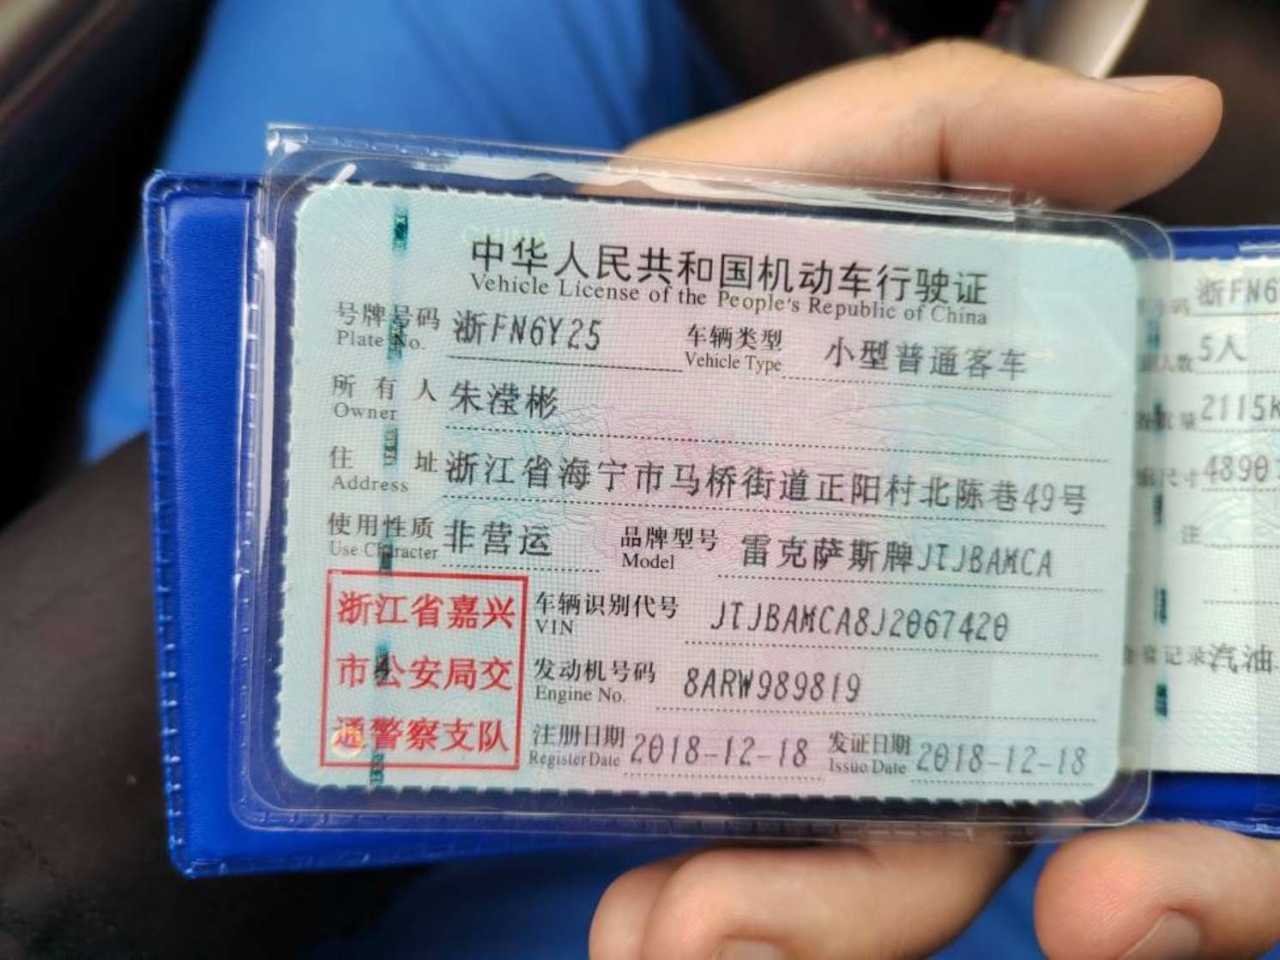 中华人民共和国机动车行驶证
Vehicle License of the People's Republic of China
号牌号码 浙FN6Y25 车辆类型 小型普通客车
Plate No. Vehicle Type
所有人 朱滢彬
Owner
住址 浙江省海宁市马桥街道正阳村北陈巷49号
Address
使用性质 非营运 品牌型号 雷克萨斯牌JTJBAMCA
Use Character Model
浙江省嘉兴
市公安局交
通警察支队
车辆识别代号 JTJBAMCA8J2067420
VIN
发动机号码 8ARW989819
Engine No.
注册日期 2018-12-18 发证日期 2018-12-18
Register Date Issue Date
浙FN6
人数 5人
2115k
尺寸 4890
注
记录 汽油